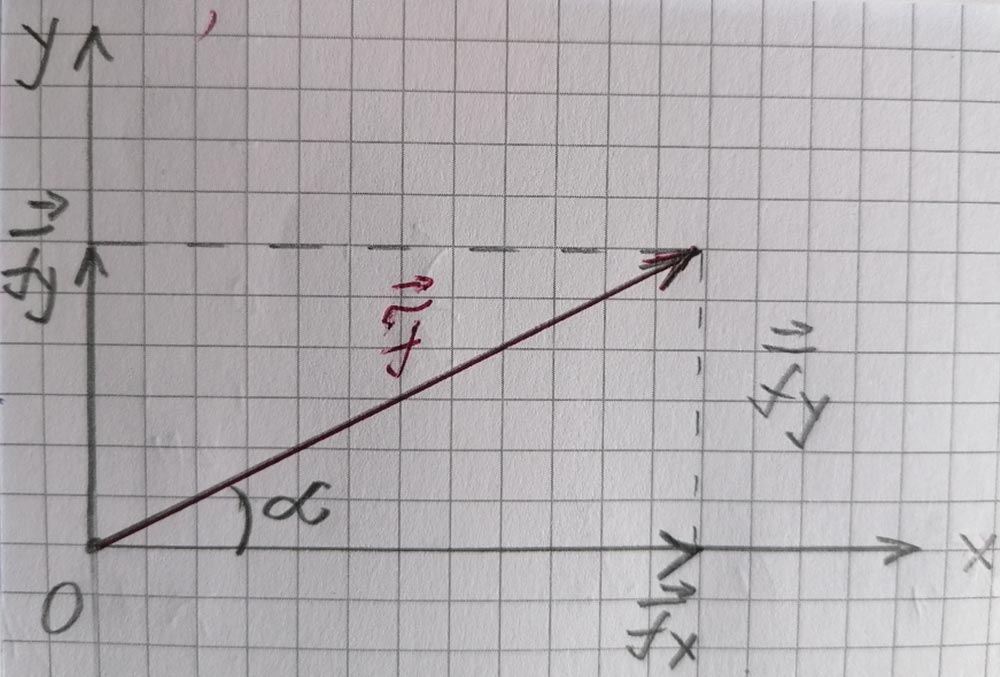 y
f⃗y
f⃗
f⃗y
α
x
O
f⃗x